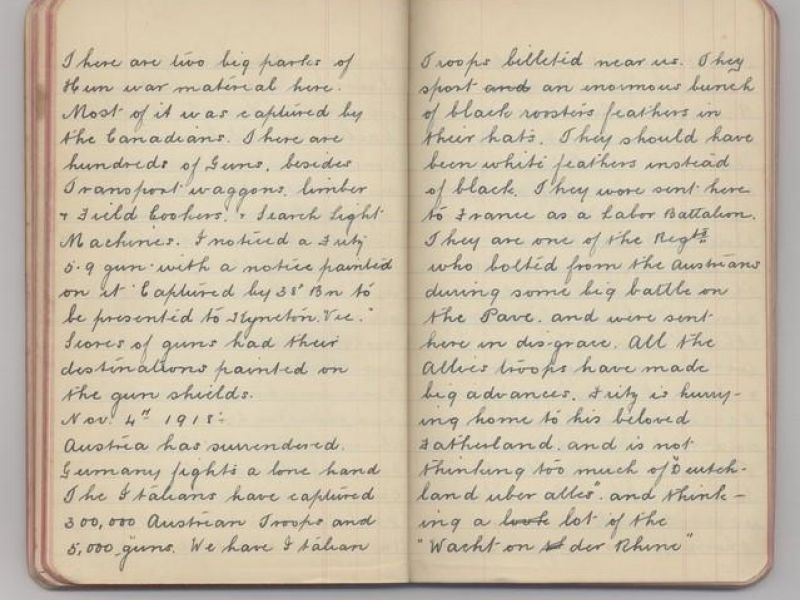 There are two big parks of
Hun war material here.
Most of it was captured by
the Canadians. There are
hundreds of Guns, besides
Transport waggons, limber
& Field Cookers, & Search Light
Machines. I noticed a Fritz
5.9 gun with a notice painted
on it "Captured by 38th Bn to
be presented to Vic."
Scores of guns had their
destinations painted on
the gun shields.
Nov. 4th 1918:
Austria has surrendered.
Germany fights a lone hand
The Italians have captured
300,000 Austrian Troops and
5,000 guns. We have Italian
Troops billetid near us. They
sport and an enormous bunch
of black roosters feathers in
their hats. They should have
been white feathers instead
of black. They were sent here
to France as a Labor Battalion.
They are one of the Regts
who bolted from the Austrians
during some big battle on
the Pave. and were sent
here in dis-grace. All the
Allies troops have made
big advances. Fritz is hurry-
ing home to his beloved
Fatherland. and is not
thinking too much of "Deutch-
land uber alles". and think-
ing a look lot of the
"Wacht on der Rhine"